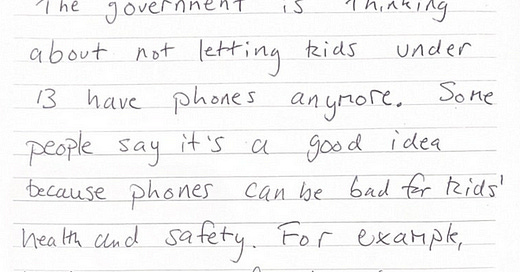 The government is thinking
about not letting kids under
13 have phones anymore. Some
people say it's a good idea
because phones can be bad for kids'
health and safety. For example,